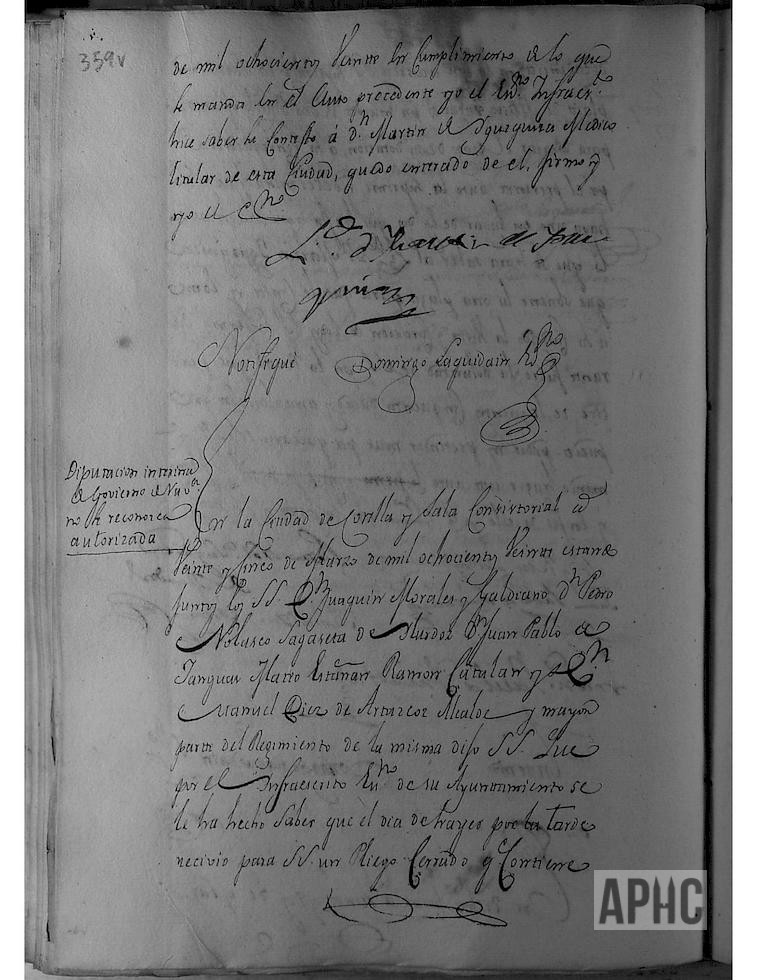 359v
de mil ochocientos Veinte en Cumplimiento de lo que
se manda en el Auto precedente yo el Essno Infraesto
hice saber su Contesto á Dn Martin de Medico
titular de esta Ciudad, quedo enterado de el, firmo y
yo el Essno
Ldo Dn
Notifiqué Domingo Laquidain
Diputacion interina
de Govierno de Navarra
no se reconozca
autorizada
En la Ciudad de Corella y Sala Consistorial a
Veinte y sinco de Marzo de mil ochocientos Veinte estando
juntos los SS. Dn Juaquin Morales y Galdiano, Dn Pedro
Nolasco Sagaseta de Ylurdoz Dn Juan Pablo de
Mateo Estañan Ramon Catalan y Dn
Manuel Diez de Artazcoz Alcalde y mayor
parte del Regimiento de la misma dijo SS. Que
por el Infraescrito Essno de su Ayuntamiento se
le ha hecho saber que el dia de hayer por la tarde
recivio para SS. un Pliego Cerrado q Contiene
APHC